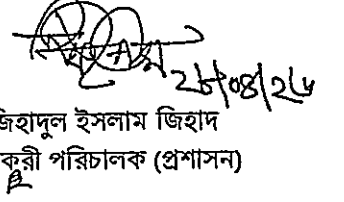 ২৮/০৪/২৬
জিহাদুল ইসলাম জিহাদ
কারী পরিচালক (প্রশাসন)